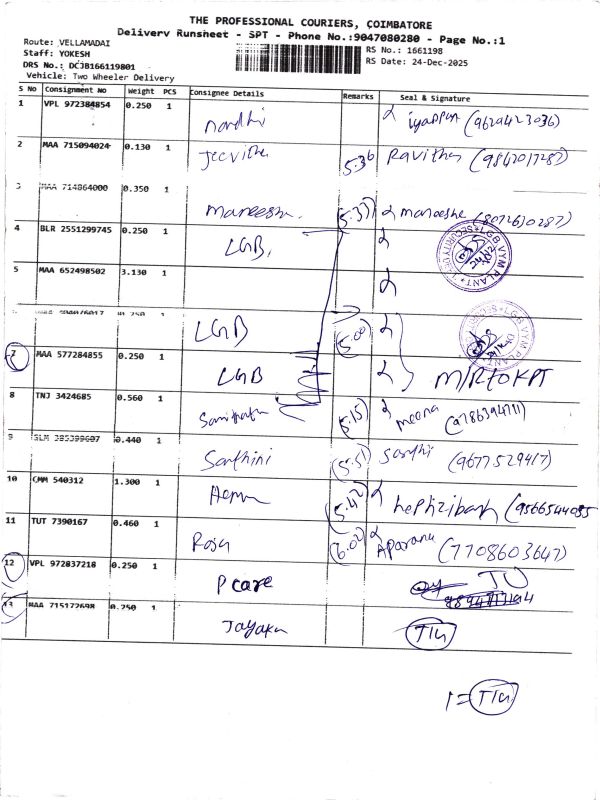 THE PROFESSIONAL COURIERS, COIMBATORE
Delivery Runsheet - SPT - Phone No.:9047080280 - Page No.:1
Route: VELLAMADAI
Staff: YOKESH
DRS No.: DCJB166119801
Vehicle: Two Wheeler Delivery
RS No.: 1661198
RS Date: 24-Dec-2025
S No Consignment No Weight PCS Consignee Details Remarks Seal & Signature
1 VPL 972384854 0.250 1
nandhi iyappan (9629423036)
2 MAA 715094024 0.130 1
Jeevitha 5.36 Ravitha (9842017287)
3 MAA 714864000 0.350 1
Maneesha (5.37) maneesha (8072630287)
4 BLR 2551299745 0.250 1
LGB
LGB VYM PLANT SECURITY
5 MAA 652498502 3.130 1
0.250 1
LGB (5.00)
LGB VYM PLANT
7 MAA 577284855 0.250 1
LGB M/R to KPT
8 TNJ 3424685 0.560 1
(5.15) meena
9 SLM 385399607 0.440 1
Santhini (5.51) Santhi (9677529417)
10 CMM 540312 1.300 1
(5.42) hephzibah (9566544085
11 TUT 7390167 0.460 1
Roja (6.02) Aparana (7708603647)
12 VPL 972837218 0.250 1
P care
13 MAA 715172698 0.250 1
Jayaku